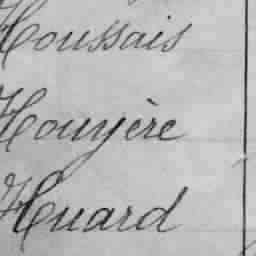 Houssais
Houyère
Huard